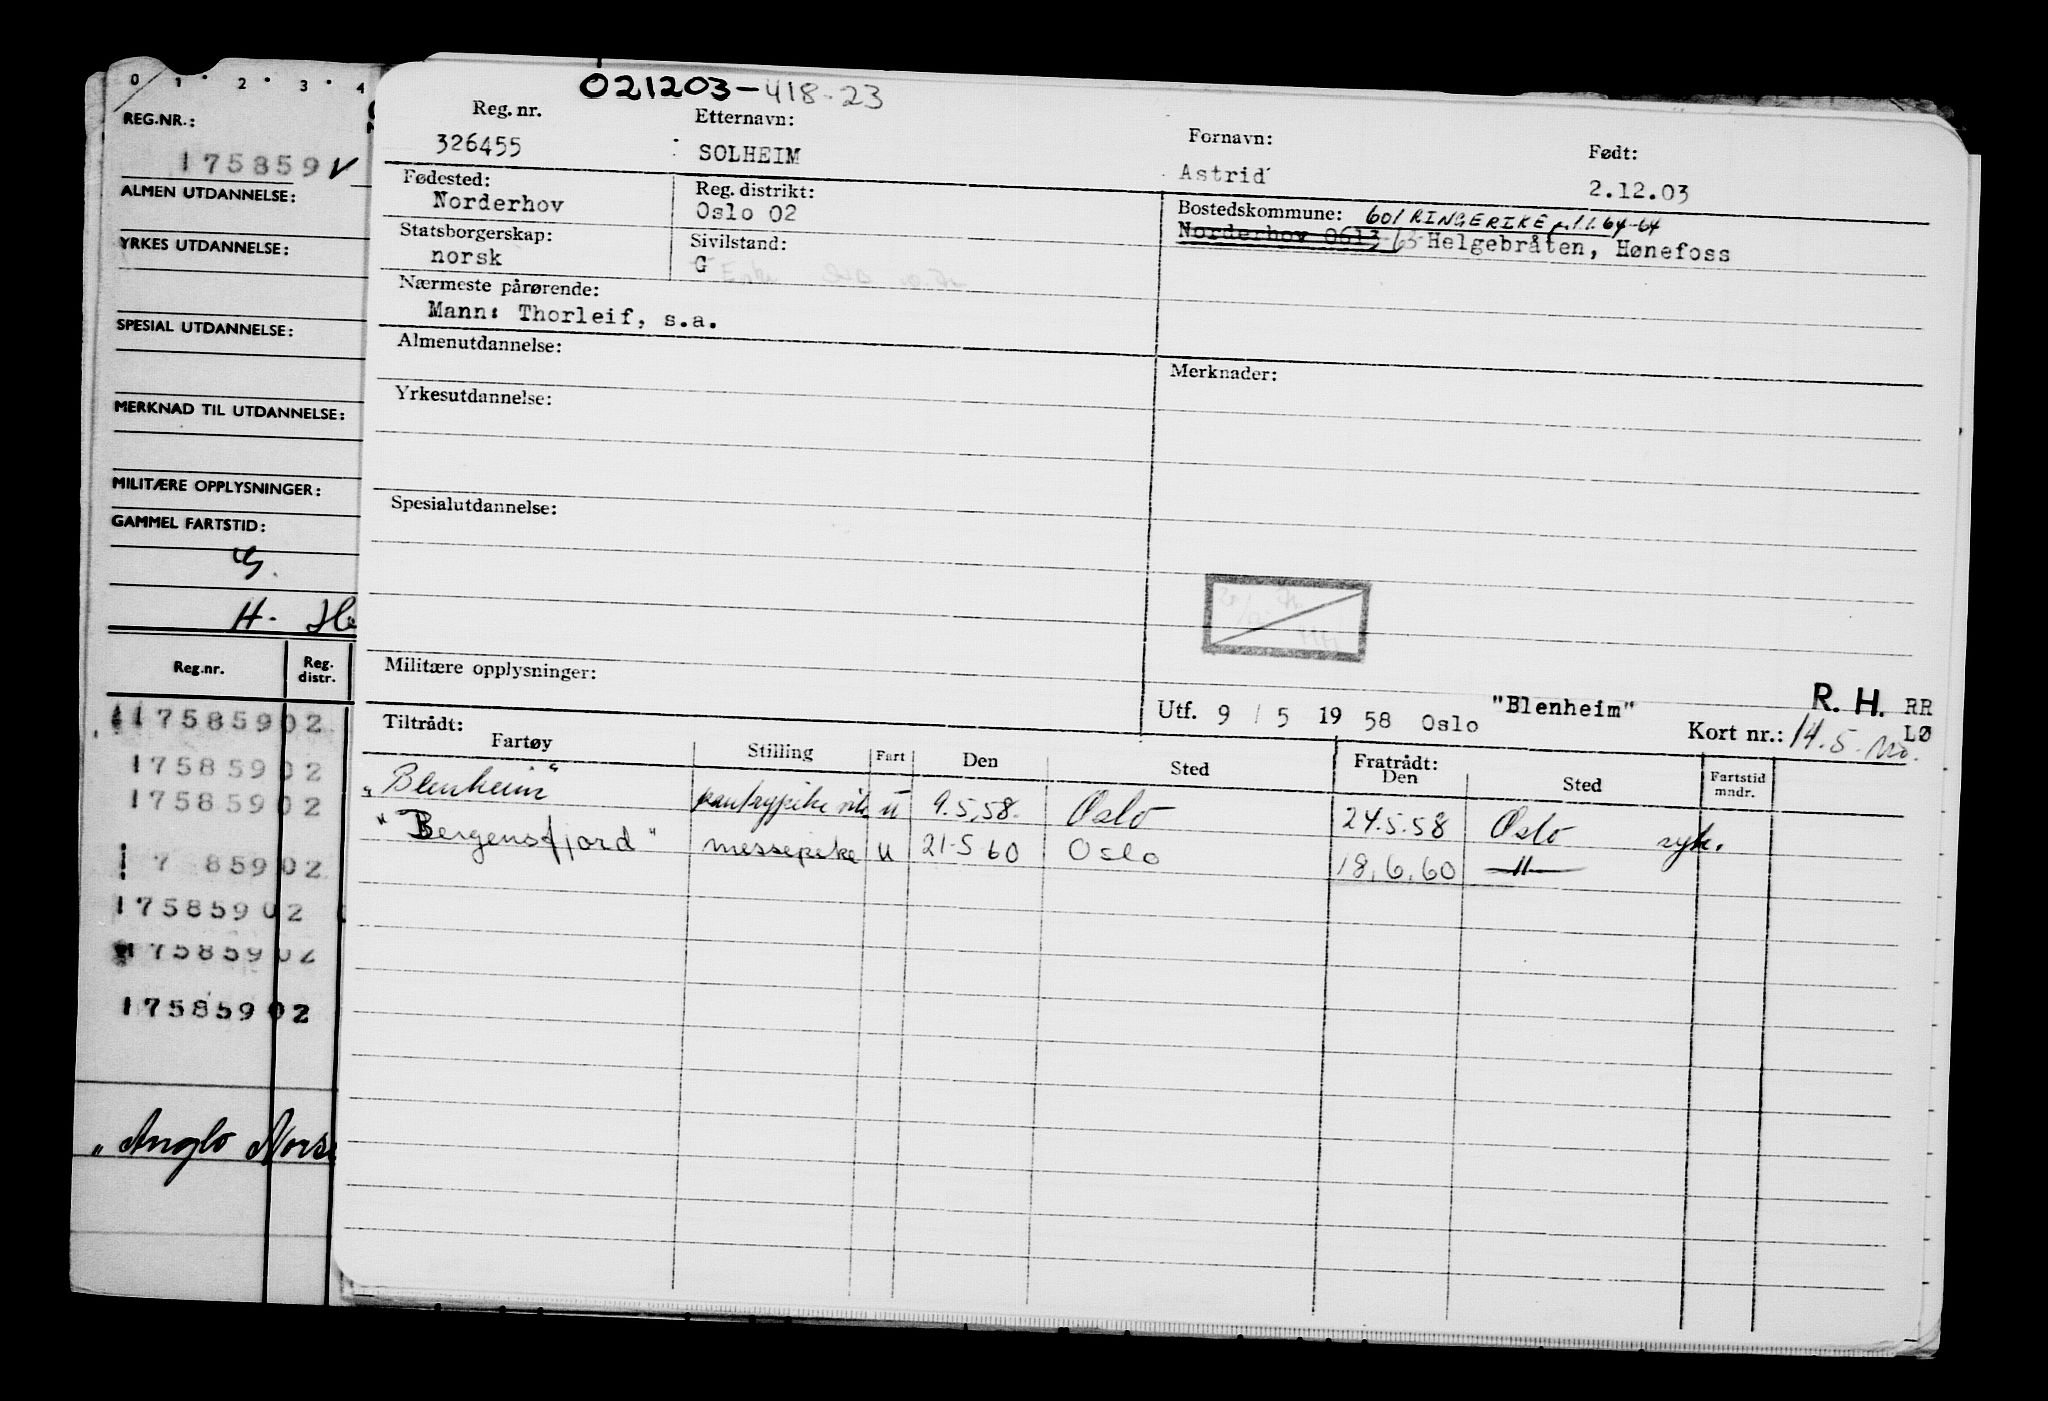 0 1 2 3 4
REG.NR.:
175859 V
ALMEN UTDANNELSE:
YRKES UTDANNELSE:
SPESIAL UTDANNELSE:
MERKNAD TIL UTDANNELSE:
MILITÆRE OPPLYSNINGER:
GAMMEL FARTSTID:
H.
Reg.nr. Reg. distr.
175859 02
175859 02
175859 02
1 7 859 02
175859 02
175859 02
175859 02
"Anglo Norse
021203-418-23
Reg. nr. Etternavn: Fornavn: Født:
326455 SOLHEIM Astrid 2.12.03
Fødested: Reg. distrikt: Bostedskommune: 601 RINGERIKE p.1.1.64-64
Norderhov Oslo 02 Norderhov 0613-63 Helgebråten, Hønefoss
Statsborgerskap: Sivilstand:
norsk G
Nærmeste pårørende:
Mann: Thorleif, s.a.
Almenutdannelse: Merknader:
Yrkesutdannelse:
Spesialutdannelse:
Militære opplysninger:
Utf. 9 / 5 19 58 Oslo "Blenheim" R. H. RR
Kort nr.: 14.5. LØ
Tiltrådt: Fratrådt:
Fartøy Stilling Fart Den Sted Den Sted Fartstid mndr.
"Blenheim" pantrypike u 9.5.58. Oslo 24.5.58 Oslo syk.
"Bergensfjord" messepike u 21.5 60 Oslo 18.6.60 —"—